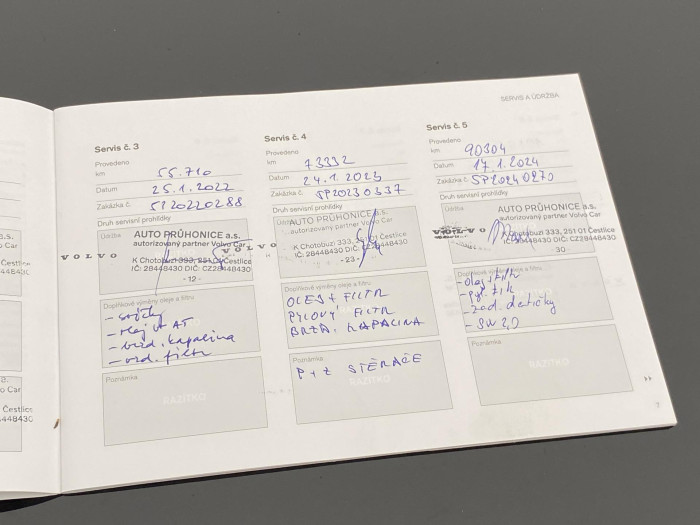 SERVIS A ÚDRŽBA
Servis č. 3
Provedeno
km 55.710
Datum 25.1.2022
Zakázka č. SP20220288
Druh servisní prohlídky
Údržba
AUTO PRŮHONICE a.s.
autorizovaný partner Volvo Car
VOLVO
K Chotobuzi 333, 251 01 Čestlice
IČ: 28448430 DIČ: CZ28448430
- 12 -
Doplňkové výměny oleje a filtru
- svíčky
- olej v AT
- brzd. kapalina
- vzd. filtr
Poznámka
RAZÍTKO
Servis č. 4
Provedeno
km 73332
Datum 24.1.2023
Zakázka č. SP20230337
Druh servisní prohlídky
AUTO PRŮHONICE a.s.
autorizovaný partner Volvo Car
VOLVO
K Chotobuzi 333, 251 01 Čestlice
IČ: 28448430 DIČ: CZ28448430
- 23 -
Doplňkové výměny oleje a filtru
OLEJ + FILTR
PYLOVÝ FILTR
BRZD. KAPALINA
Poznámka
P + Z STĚRAČE
RAZÍTKO
Servis č. 5
Provedeno
km 90304
Datum 17.1.2024
Zakázka č. SP20240270
Druh servisní prohlídky
Údržba
AUTO PRŮHONICE a.s.
autorizovaný partner Volvo Car
VOLVO
K Chotobuzi 333, 251 01 Čestlice
IČ: 28448430 DIČ: CZ28448430
30
Doplňkové výměny oleje a filtru
- olej + filtr
- pyl. filtr
- zad. destičky
- SW 2,0
Poznámka
RAZÍTKO
7